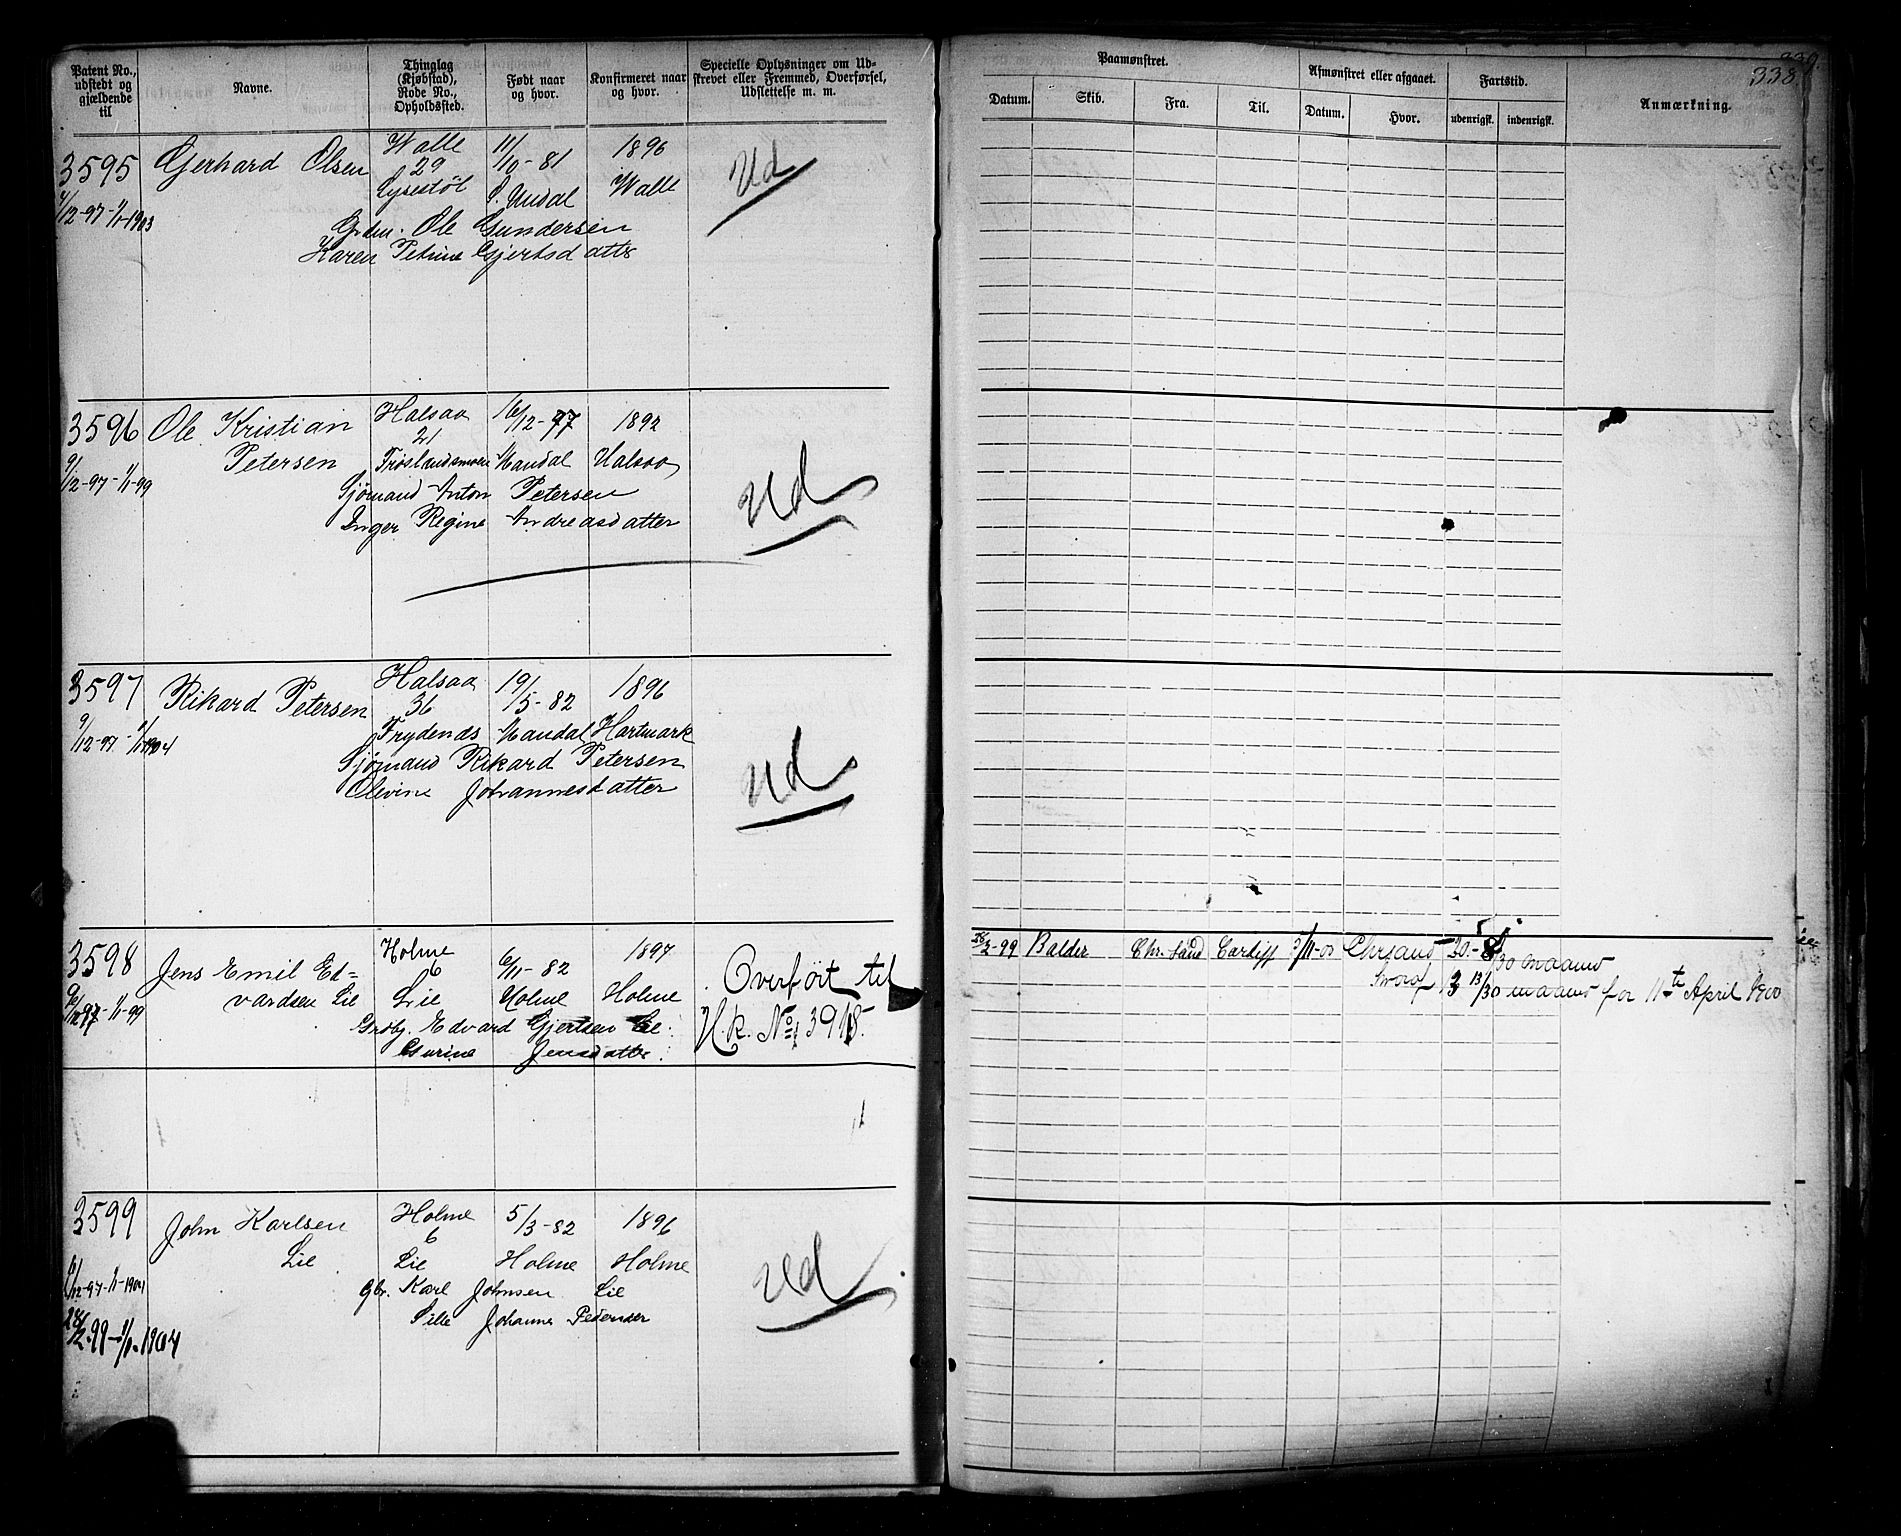 Patent No., udstedt og gjældende til
Navne.
Thinglag (Kjøbstad), Rode No., Opholdssted.
Født naar og hvor.
Konfirmeret naar og hvor.
Specielle Oplysninger om Udskrevet eller Fremmed, Overførsel, Udslettelse m. m.
3595 Gerhard Olsen Walle 11/10-81 1896
29
Lysestöl S. Undal Walle
/12-97-1/1-1903
Ole Gundersen
Karen Petrine Gjertsdatter
Ud
3596 Ole Kristian Halsaa 16/12-77 1892
21
Petersen Frøslandsmoen Mandal Halsaa
9/12-97-1/1-99
Sjømand Anton Petersen
Inger Regine Andreasdatter
Ud
3597 Rikard Petersen Halsaa 19/5-82 1896
36
Frydends Mandal Hartmark
9/12-97-1/1-1904
Sjømand Rikard Petersen
Olevine Johannesdatter
Ud
3598 Jens Emil Ed= Holme 6/11-82 1897
6
vardsen Lie Lie Holme Holme
/12-97-1/1-99
Edvard Gjertsen Lie
Gurine Jensdatter
Overført til
H.k. No 3918.
3599 John Karlsen Holme 5/3-82 1896
6
Lie Lie Holme Holme
/12-97-1/1-1904
Gbr. Karl Johnsen Lie
Sille Johanne Pedersdtr
-99-1/1-1904
Ud
338
Paamønstret.
Afmønstret eller afgaaet.
Fartstid.
Anmærkning.
Datum.
Skib.
Fra.
Til.
Datum.
Hvor.
udenrigsk.
indenrigsk.
/2-99 Balder Chr. sand Cardiff 3/11-00 Chrsand 20-8/30 maaned
3 13/30 maaned for 11te April 1900